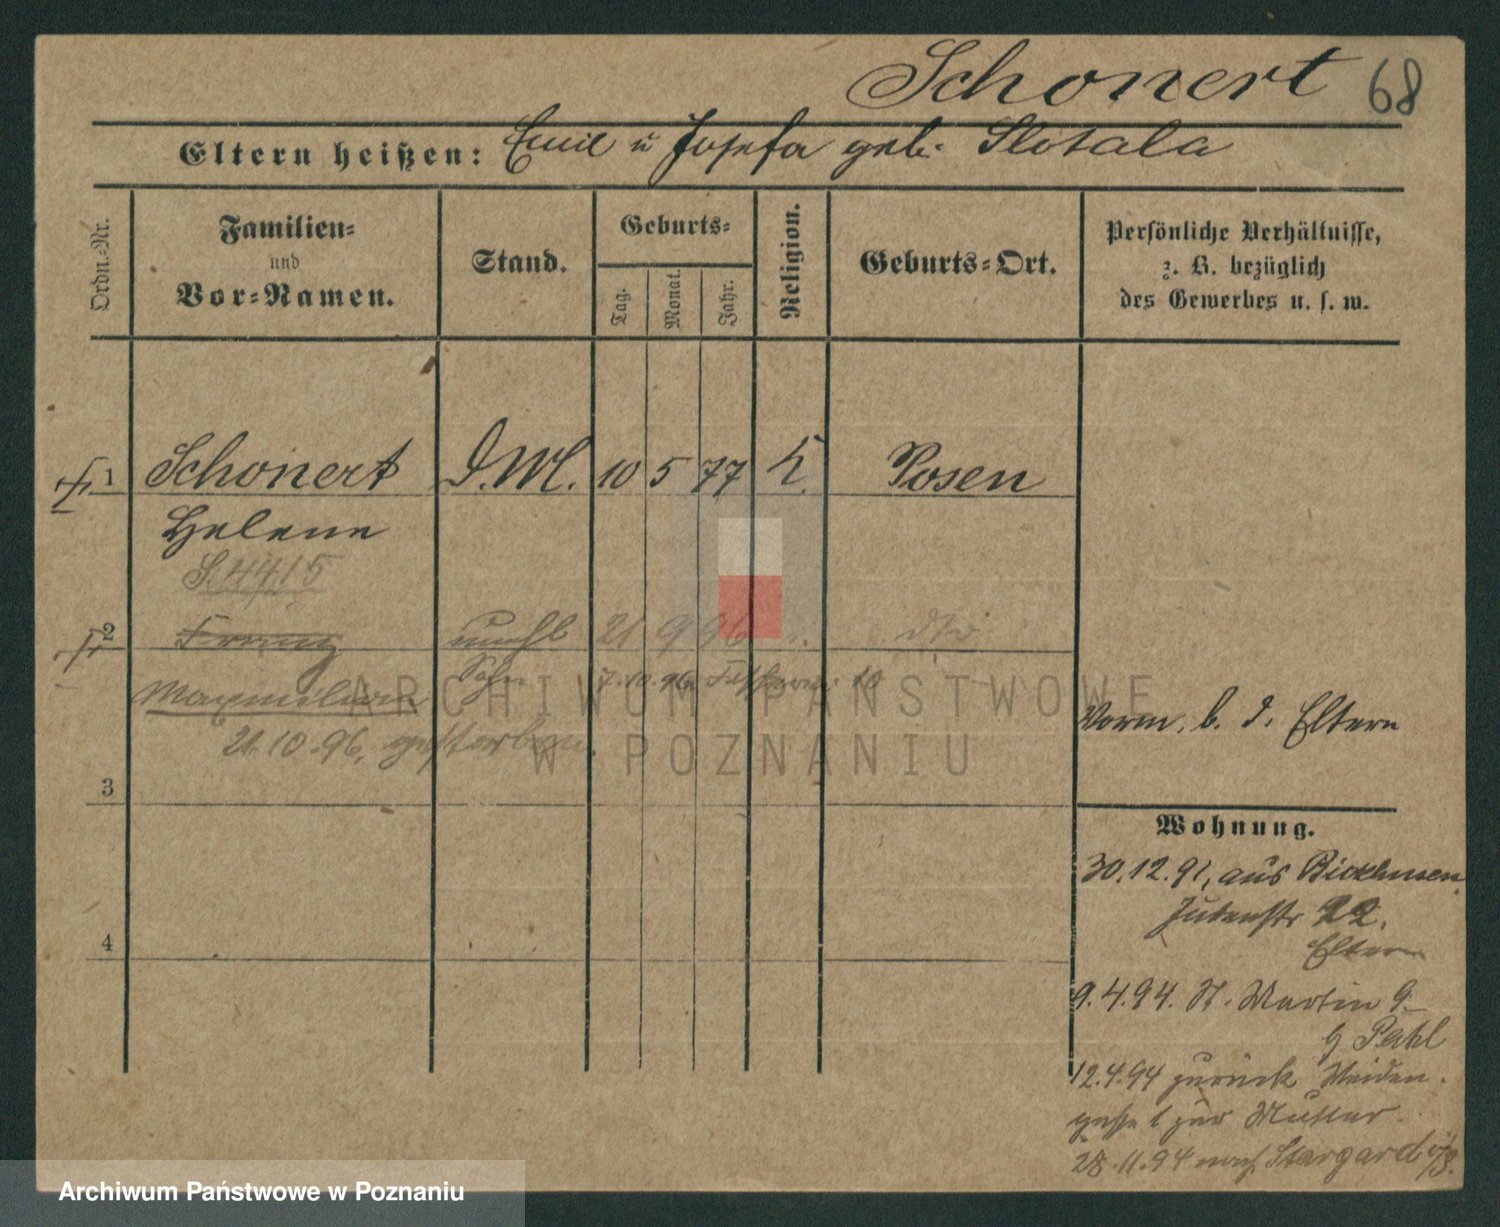 Schonert 68
Eltern heißen: Emil u Josefa geb. Slotala
Ordn.-Nr.
Familien-
und
Vor-Namen.
Stand.
Geburts-
Tag.
Monat.
Jahr.
Religion.
Geburts-Ort.
Persönliche Verhältnisse,
z. B. bezüglich
des Gewerbes u. s. w.
1 Schonert D.M. 10 5 77 K. Posen
Helene
2 Franz unehl 21 9 96 dto
Maxmilian Sohn 7.10.96
21.10.96, gestorben.
ARCHIWUM PAŃSTWOWE
W POZNANIU
3
4
Vorm. b. d. Eltern
Wohnung.
30.12.91, aus
Judenstr 22.
Eltern
9.4.94. St. Martin 9
b Pahl
12.4.94 zurück Weiden-
gasse 1 zur Mutter.
28.11.94 nach Stargard
Archiwum Państwowe w Poznaniu